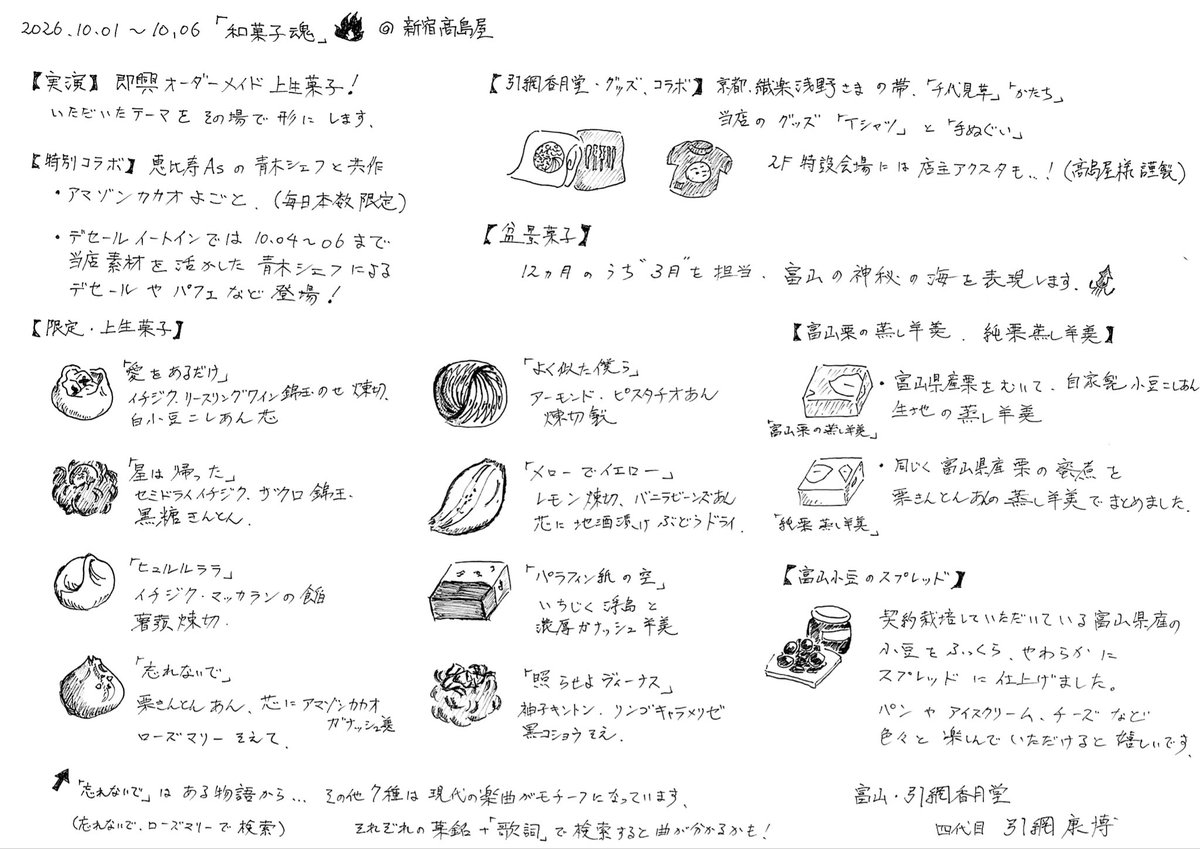 2026.10.01〜10.06「和菓子魂」@新宿高島屋
【実演】即興オーダーメイド上生菓子！
いただいたテーマをその場で形にします。
【特別コラボ】恵比寿Asの青木シェフと共作
・アマゾンカカオよごと、(毎日本数限定)
・デセールイートインでは10.04〜06まで
当店素材を活かした青木シェフによる
デセールやパフェなど登場！
【引網香月堂・グッズ、コラボ】京都、織楽浅野さまの帯、「千代見草」「かたち」
当店のグッズ「Tシャツ」と「手ぬぐい」
2F特設会場には店主アクスタも..！(高島屋様謹製)
【盆景菓子】
12ヵ月のうち"3月"を担当、富山の神秘の海を表現します。
【限定・上生菓子】
「愛をあるだけ」
イチジク、リースリングワイン錦玉のせ煉切、
白小豆こしあん芯
「星は帰った」
セミドライイチジク、ザクロ錦玉、
黒糖きんとん.
「ヒュルルララ」
イチジク・マッカランの餡
薯蕷煉切.
「忘れないで」
栗きんとんあん、芯にアマゾンカカオ
ガナッシュ羹
ローズマリーそえて、
「よく似た僕ら」
アーモンド、ピスタチオあん
煉切製
「メローでイエロー」
レモン煉切、バニラビーンズあん
芯に地酒漬けぶどうドライ.
「パラフィン紙の空」
いちじく浮島と
濃厚ガナッシュ羊羹
「照らせよディーナス」
柚子キントン、リンゴキャラメリゼ
黒コショウそえ.
【富山栗の蒸し羊羹、純栗蒸し羊羹】
・富山県産栗をむいて、自家製小豆こしあん
生地の蒸し羊羹
「富山栗の蒸し羊羹」
・同じく富山県産栗の蜜煮を
栗きんとんあんの蒸し羊羹でまとめました.
「純栗蒸し羊羹」
【富山小豆のスプレッド】
契約栽培していただいている富山県産の
小豆をふっくら、やわらかに
スプレッドに仕上げました。
パンやアイスクリーム、チーズなど
色々と楽しんでいただけると嬉しいです.
「忘れないで」はある物語から... その他7種は現代の楽曲がモチーフになっています、
(忘れないで、ローズマリーで検索) それぞれの菓銘+「歌詞」で検索すると曲が分かるかも！
富山・引網香月堂
四代目 引網康博